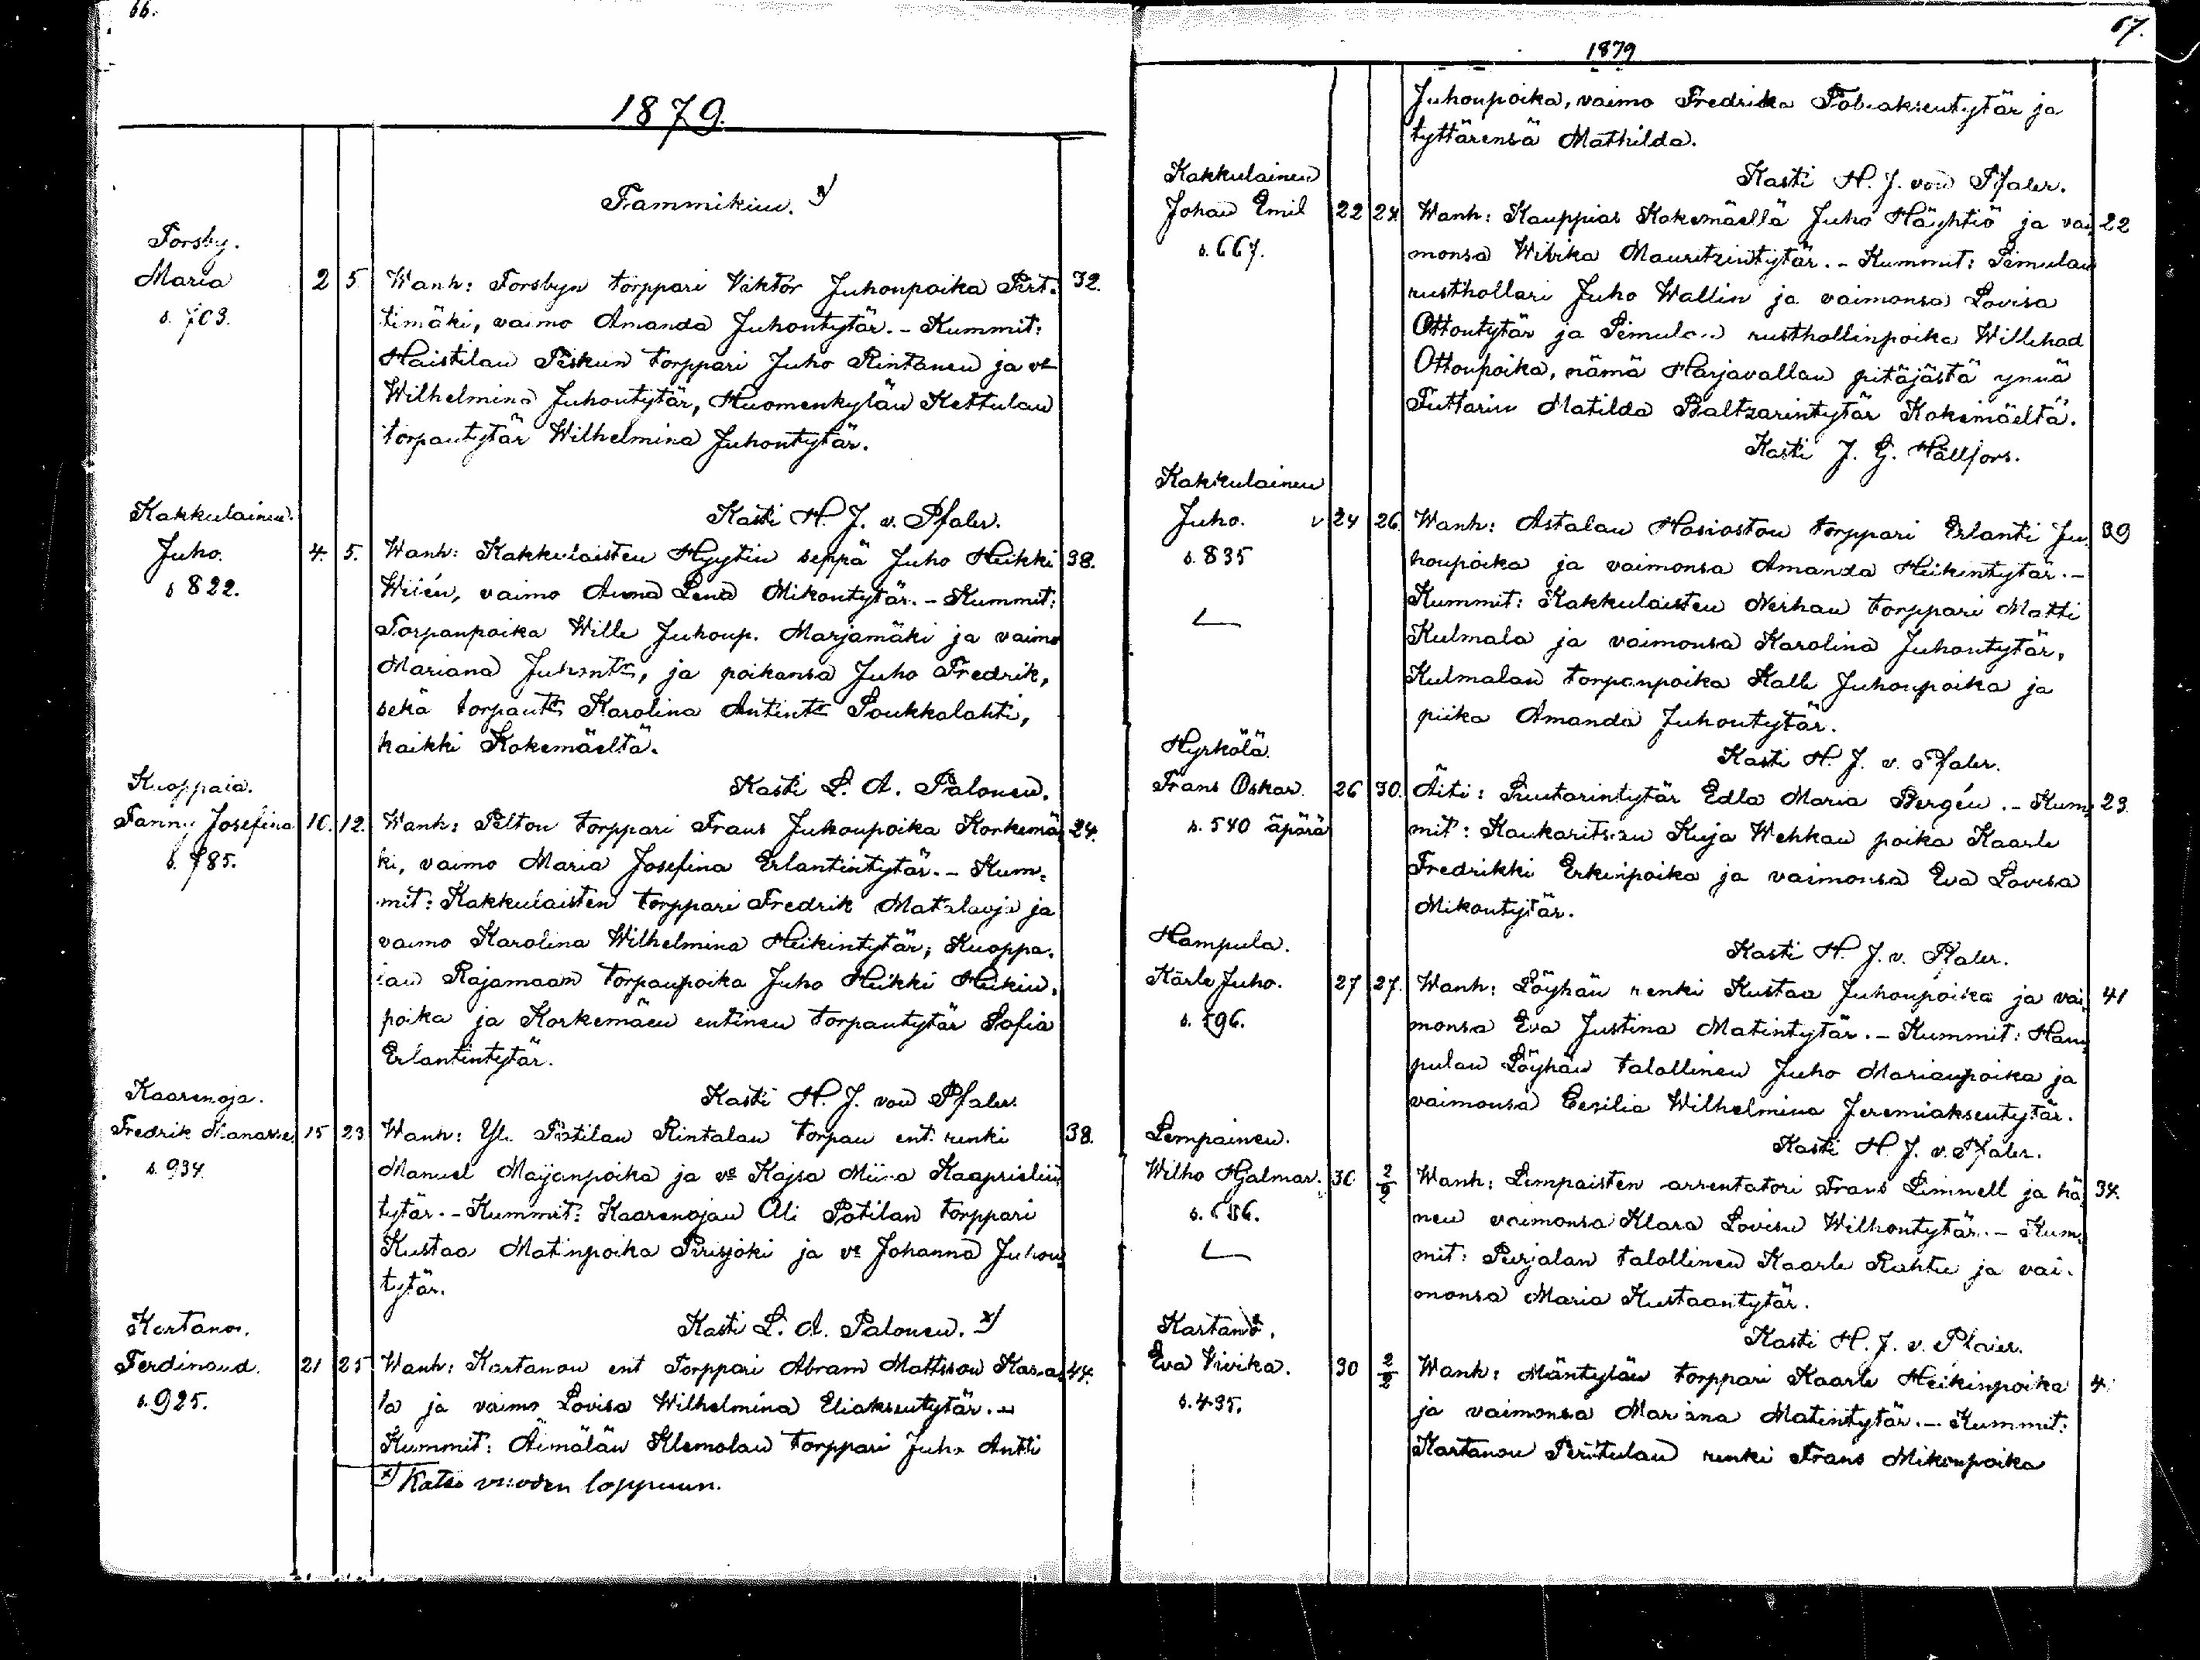 66.
1879.
Tammikuu. x)
Forsby.
Maria 2 5 Wanh: Forsbyn torppari Viktor Juhonpoika Pirt- 32.
s. 703. timäki, vaimo Amanda Juhontytär. - Kummit:
Haistilan Peskun torppari Juho Rintanen ja vo
Wilhelmina Juhontytär, Huomenkylän Kettulan
torpantytär Wilhelmina Juhontytär.
Kasti H. J. v. Pfaler.
Kakkulainen.
Juho. 4. 5. Wanh: Kakkulaisten Hyytin seppä Juho Heikki 38.
s 822. Wiién, vaimo Anna Lena Mikontytär. - Kummit:
Torpanpoika Wille Juhonp. Marjamäki ja vaimo
Mariana Juhontr, ja poikansa Juho Fredrik,
sekä torpantr Karolina Antintr Loukkalahti,
kaikki Kokemäeltä.
Kasti L. A. Palonen.
Kuoppala.
Fanny Josefina 10. 12. Wanh: Pelton torppari Frans Juhonpoika Korkemä- 24.
s. 785. ki, vaimo Maria Josefina Erlantintytär. - Kum-
mit: Kakkulaisten torppari Fredrik Mataloja ja
vaimo Karolina Wilhelmina Heikintytär; Kuoppa-
lan Rajamaan torpanpoika Juho Heikki Heikin-
poika ja Korkemäen entinen torpantytär Sofia
Erlantintytär.
Kasti H. J. von Pfaler.
Kaarenoja.
Fredrik Manasse 15 23 Wanh: Yli Pätilän Rintalan torpan ent. renki 38.
s. 934. Manuel Maijanpoika ja vo Kajsa Miina Kaaprielin
tytär. - Kummit: Kaarenojan Ali Pätilän torppari
Kustaa Matinpoika Pirisjoki ja vo Johanna Juhon
tytär.
Kasti L. A. Palonen. x)
Kartano.
Ferdinand. 21 25 Wanh: Kartanon ent torppari Abram Mattsson Kasa- 44.
s. 925. la ja vaimo Lovisa Wilhelmina Eliaksentytär. -
Kummit: Äimälän Klemolan torppari Juho Antti
x) Katso vuoden loppuun.
67.
1879
Juhonpoika, vaimo Fredrika Tobiaksentytär ja
tyttärensä Mathilda.
Kasti H. J. von Pfaler.
Kakkulainen
Johan Emil 22 24 Wanh: Kauppias Kokemäellä Juho Häyhtiö ja vai- 22
s. 667. monsa Wivika Mauritzintytär. - Kummit: Pirnulan
rusthollari Juho Wallin ja vaimonsa Lovisa
Ottontytär ja Pirnulan rusthollinpoika Willehad
Ottonpoika, nämä Harjavallan pitäjästä ynnä
Tuttarin Matilda Baltzarintytär Kokemäeltä.
Kasti J. G. Hällfors.
Kakkulainen
Juho. v 24 26 Wanh: Astalan Hosioston torppari Erlanti Ju- 39
s. 835 honpoika ja vaimonsa Amanda Heikintytär. -
Kummit: Kakkulaisten Nerhan torppari Matti
Kulmala ja vaimonsa Karolina Juhontytär,
Kulmalan torpanpoika Kalle Juhonpoika ja
piika Amanda Juhontytär.
Kasti H. J. v. Pfaler.
Hyrkölä.
Frans Oskar. 26 30. Äiti: Suutarintytär Edla Maria Bergén. - Kum- 23.
s. 540 äpärä mit: Kaukaritsan Kuja Wehkan poika Kaarle
Fredrikki Erkinpoika ja vaimonsa Eva Lovisa
Mikontytär.
Kasti H. J. v. Pfaler.
Hampula.
Kárle Juho. 27 27. Wanh: Löyhän renki Kustaa Juhonpoika ja vai- 41
s. 596. monsa Eva Justina Matintytär. - Kummit: Ham-
pulan Löyhän talollinen Juho Marianpoika ja
vaimonsa Cezilia Wilhelmina Jeremiaksentytär.
Kasti H. J. v. Pfaler.
Lempainen.
Wilho Hjalmar. 30 2/2 Wanh: Lempaisten arrentatori Frans Limnell ja hä- 34.
s. 686. nen vaimonsa Klara Lovisa Wilhontytär. - Kum-
mit: Purjalan talollinen Kaarle Rahtu ja vai-
monsa Maria Kustaantytär.
Kasti H. J. v. Pfaler.
Kartano.
Eva Vivika. 30 2/2 Wanh: Mäntylän torppari Kaarle Heikinpoika 4
s. 435. ja vaimonsa Mariana Matintytär. - Kummit:
Kartanon Perttulan renki Frans Mikonpoika